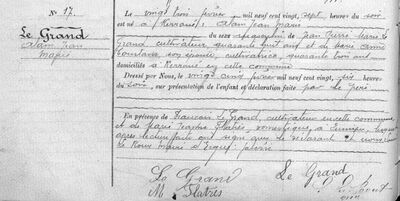 N° 17.
Le Grand
Alain Jean
Marie
Le vingt trois février mil neuf cent vingt, sept heures du soir
est né à Kerrani : Alain Jean Marie
du sexe masculin de Jean Pierre Marie Le
Grand, cultivateur, quarante huit ans et de Marie Anne
son épouse, cultivatrice, quarante trois ans
domiciliés à en cette commune
Dressé par Nous, le vingt cinq février mil neuf cent vingt, six heures
du soir, sur présentation de l'enfant et déclaration faite par le père
En présence de François Le Grand, cultivateur en cette commune
et de Marie Jeanne Flatrès, domestique à Quimper,
après lecture faite ont signé avec le déclarant et nous
Le Roux maire d'Ergué-
Le Grand
Le Grand
M Flatrès